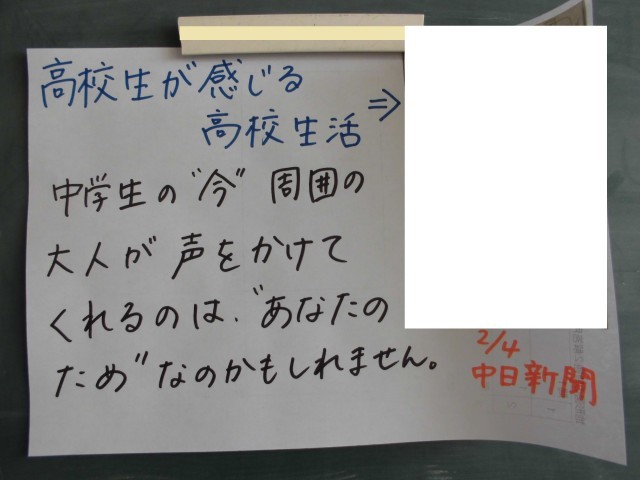 高校生が感じる
高校生活 ⇒
中学生の"今"周囲の
大人が声をかけて
くれるのは、"あなたの
ため"なのかもしれません。
2/4
中日新聞